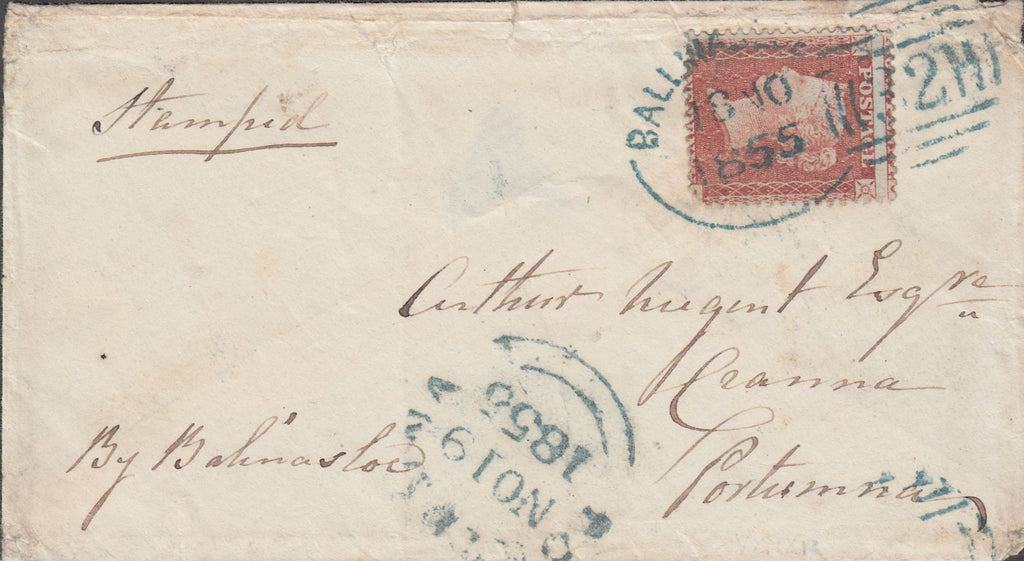 Stamped
BALLIN
18 NO
1855
POSTAGE
Arthur Nugent Esqre
Cranna
Portumna
By Balinasloe
NO 19
1855